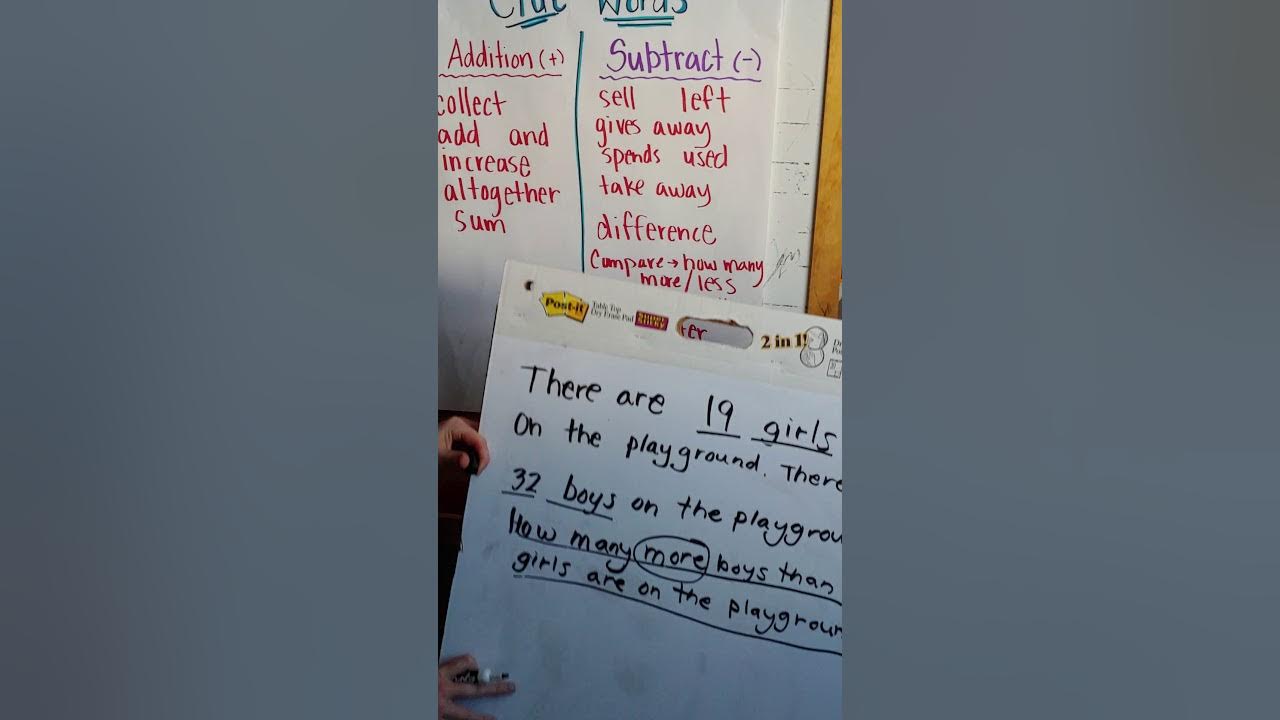 Clue Words
Addition (+)
collect
add and
increase
altogether
sum
Subtract (-)
sell left
gives away
spends used
take away
difference
Compare → how many
more/less
Post-it Table Top
Dry Erase Pad SUPER STICKY
ter
2 in 1!
There are 19 girls
On the playground. There
32 boys on the playgrou
How many more boys than
girls are on the playgroun